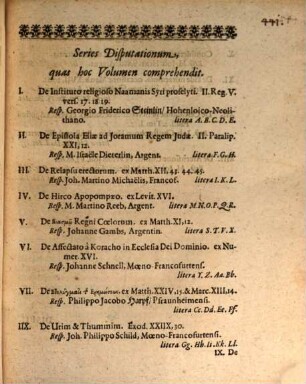 441.
Series Disputationum,
quas hoc Volumen comprehendit.
I. De Instituto religioso Naamanis Syri proselyti. II. Reg. V.
vers. 17. 18. 19.
Resp. Georgio Friderico Steinlin/ Hohenloico-Neolithano.
litera A. B. C. D. E.
II. De Epistola Eliæ ad Joramum Regem Judæ. II. Paralip.
XXI, 12.
Resp. M. Israële Dieterlin, Argent.
litera F. G. H.
III. De Relapsu erectorum. ex Matth. XII. 43. 44. 45.
Resp. Joh. Martino Michaëlis, Francof.
litera I. K. L.
IV. De Hirco Apopompæo. ex Levit. XVI.
Resp. M. Martino Reeb, Argent.
litera M. N. O. P. Q. R.
V. De βιασμῷ Regni Cœlorum. ex Matth. XI, 12.
Resp. Johanne Gambs, Argentin.
litera S. T. V. X.
VI. De Affectato à Koracho in Ecclesia Dei Dominio. ex Numer. XVI.
Resp. Johanne Schnell, Mœno-Francofurtensi.
litera Y. Z. Aa. Bb.
VII. De ex Matth. XXIV, 15. & Marc. XIII, 14.
Resp. Philippo Jacobo Pfraunheimensi.
litera Cc. Dd. Ee. Ff.
IIX. De Urim & Thummim. Exod. XXIIX, 30.
Resp. Joh. Philippo Schild, Mœno-Francofurtensi.
litera Gg. Hh. Ii. Kk. Ll.
IX. De